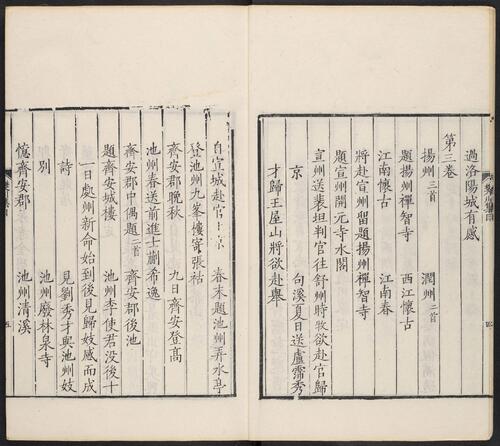 過洛陽城有感
第三卷
揚州三首 潤州二首
題揚州禪智寺 西江懷古
江南懷古 江南春
將赴宣州留題揚州禪智寺
題宣州開元寺水閣
宣州送裴坦判官往舒州時牧欲赴官歸
京 句溪夏日送盧霈秀
才歸王屋山將欲赴舉
自宣城赴官上京 春末題池州弄水亭
登池州九峯樓寄張祜
齊安郡晚秋 九日齊安登高
池州春送前進士蒯希逸
齊安郡中偶題二首 齊安郡後池
題齊安城樓 池州李使君没後十
一日處州新命始到後見歸妓感而成
詩 見劉秀才與池州妓
別 池州廢林泉寺
憶齊安郡 池州清溪
五